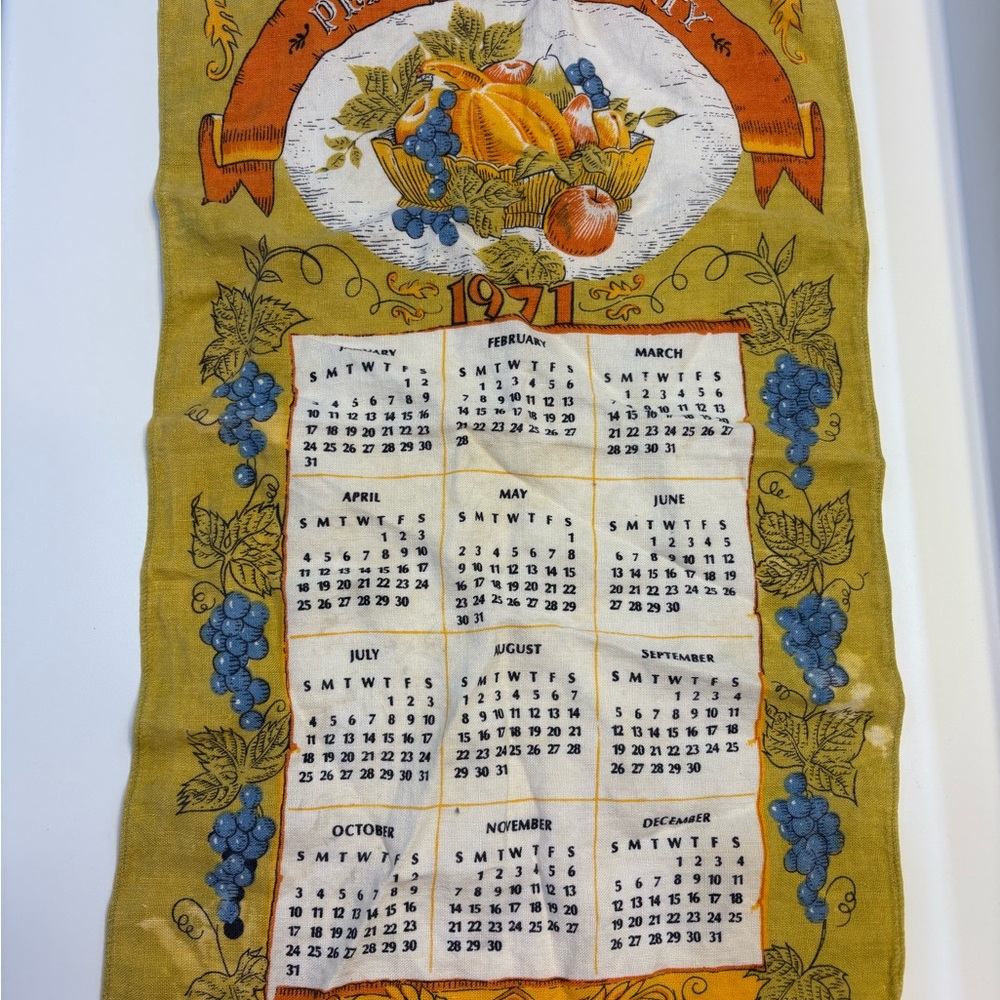 1971
JANUARY FEBRUARY MARCH
S M T W T F S S M T W T F S S M T W T F S
1 2 1 2 3 4 5 6 1 2 3 4 5 6
4 5 6 7 8 9 7 8 9 10 11 12 13 9 10 11 12 13
10 11 12 13 14 15 16 14 15 16 17 18 19 20 14 15 16 17 18 19 20
17 18 19 20 21 22 23 21 22 23 24 25 26 27 21 22 23 24 25 26 27
24 25 26 27 28 29 30 28 28 29 30 31
31
APRIL MAY JUNE
S M T W T F S S M T W T F S S M T W T F S
1 2 3 1 1 2 3 4 5
4 5 6 7 8 9 10 2 3 4 5 6 7 8 6 7 8 9 10 11 12
11 12 13 14 15 16 17 9 10 11 12 13 14 15 13 14 15 16 17 18 19
18 19 20 21 22 23 24 16 17 18 19 20 21 22 20 21 22 23 24 25 26
25 26 27 28 29 30 23 24 25 26 27 28 29 27 28 29 30
30 31
JULY AUGUST SEPTEMBER
S M T W T F S S M T W T F S S M T W T F S
1 2 3 1 2 3 4 5 6 7 1 2 3 4
4 5 6 7 8 9 10 8 9 10 11 12 13 14 5 6 7 8 9 10 11
11 12 13 14 15 16 17 15 16 17 18 19 20 21 12 13 14 15 16 17 18
18 19 20 21 22 23 24 22 23 24 25 26 27 28 19 20 21 22 23 24 25
25 26 27 28 29 30 31 29 30 31 26 27 28 29 30
OCTOBER NOVEMBER DECEMBER
S M T W T F S S M T W T F S S M T W T F S
1 2 1 2 3 4 5 6 1 2 3 4
3 4 5 6 7 8 9 7 8 9 10 11 12 13 5 6 7 8 9 10 11
10 11 12 13 14 15 16 14 15 16 17 18 19 20 12 13 14 15 16 17 18
17 18 19 20 21 22 23 21 22 23 24 25 26 27 19 20 21 22 23 24 25
24 25 26 27 28 29 30 28 29 30 26 27 28 29 30 31
31